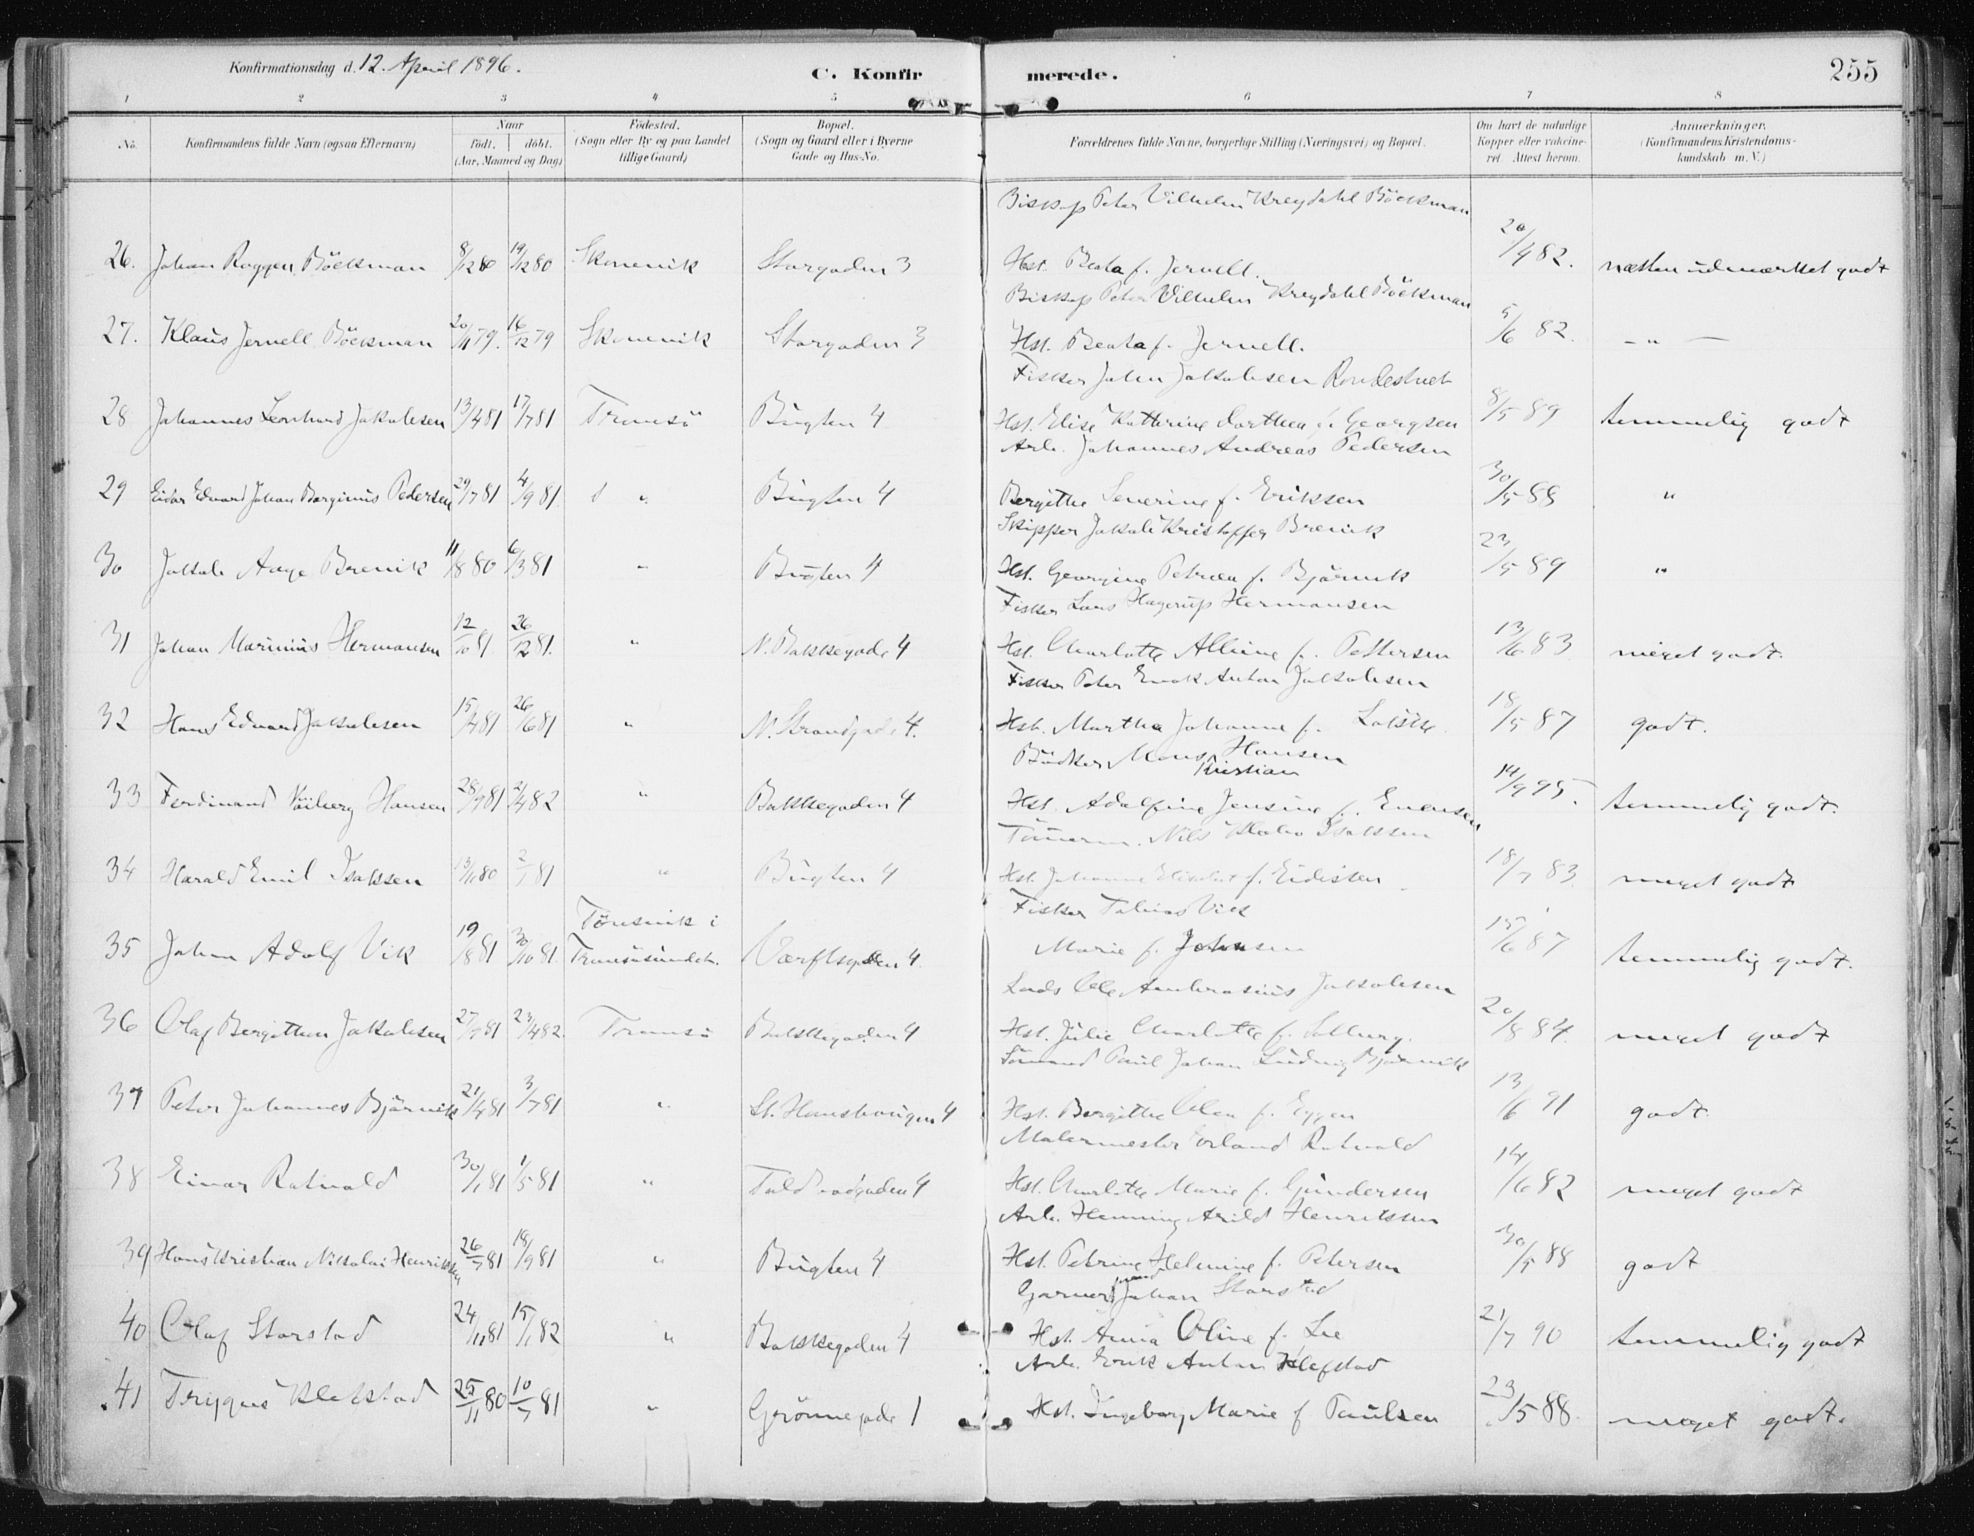 Konfirmationsdag d. 12. April 1896.
C. Konfirmerede.
255
1 2 3 4 5 6 7 8
No. Konfirmandens fulde Navn (ogsaa Efternavn) Naar født. døbt. (Aar, Maaned og Dag) Fødested. (Sogn eller By og paa Landet tillige Gaard) Bopæl. (Sogn og Gaard eller i Byerne Gade og Hus-No. Forældrenes fulde Navne, borgerlige Stilling (Næringsvei) og Bopæl. Om havt de naturlige Kopper eller vakcineret. Attest herom. Anmærkninger. (Konfirmandens Kristendomskundskab m. V.)
Biskop Peter Vilhelm Kreydahl Böckman
26. Johan Roggen Böckman 8/12 80 19/12 80 Skonevik Storgaden 3 Hst. Beata f. Jervell. 20/9 82. næsten udmærket godt
Biskop Peter Vilhelm Kreydahl Böckman
27. Klaus Jervell Böckman 20/11 79. 16/12 79 Skonevik Storgaden 3 Hst. Beata f. Jervell. 5/6 82. — " —
Fisker Johan Jakobsen
28 Johannes Leonhard Jakobsen 13/4 81 17/7 81 Tromsö Bugten 4 Hst. Elise Kathrine Dorthea f. Georgsen 8/5 89 temmelig godt
Arb. Johannes Andreas Pedersen
29 Eidar Edvard Johan Pedersen 29/7 81 4/9 81. " Bugten 4 Bergithe Severine f. Eriksen 30/5 88 "
Skipper Jakob Kristoffer Brevik
30 Jakob Aage Brevik 11/8 80 6/3 81 " Bugten 4 Hst. Georgine Petrea f. Bjørvik 23/5 89 "
Fisker Lars Hagerup Hermansen
31 Johan Marinius Hermansen 12/10 81. 26/12 81. " N. Bakkegade 4 Hst. Charlotte Alline f. Pettersen 13/6 83 meget godt.
Fisker Peter Enok Anton Jakobsen
32 Hans Edvard Jakobsen 15/4 81 26/6 81 " N. Strandgade 4. Hst. Martha Johanne f. 18/5 87 godt.
Bödker Mons Kristian Hansen
33 Ferdinand Hansen 28/9 81 2/4 82 " Bakkegaden 4 Hst. Adolfine Jensine f. Evensen 14/9 95. temmelig godt.
Tömerm. Nils Isaksen
34 Harald Emil Isaksen 13/11 80 2/1 81 " Bugten 4 Hst. Johanne Elisabet f. Eidisten 18/7 83. meget godt
Fisker Tobias Vik
35 Johan Adolf Vik 19/8 81 30/10 81. Tönsvik i Tromsösundet. Værftsgaden 4. Marie f. Johnsen 15/6 87 temmelig godt.
Lods Ole Ambrosius Jakobsen
36 Olaf Bergithon Jakobsen 27/7 81 23/4 82. Tromsö Bakkegaden 4 Hst. Julie Charlotte f. Solberg. 20/8 84. meget godt
Sömand Paul Johan Ludvig Bjørnvik
37 Peter Johannes Bjørnvik 21/4 81 3/7 81 " St. Hanshaugen 4 Hst. Bergithe Olea f. Eggen 13/6 91 godt.
Malermester Erland Rotvold
38 Einar Rotvold 30/1 81 1/5 81 " Toldbodgaden 4 Hst. Charlotte Marie f. Gundersen 14/6 82 meget godt
Arb. Henning Arild Henriksen
39 Hans Kristian Nikolai Henriksen 26/7 81 18/9 81 " Bugten 4 Hst. Petrine Helmine f. Petersen 30/5 88 godt
Garversvend Johan Storstad
40 Olaf Storstad 24/11 81 15/1 82 " Bakkegaden 4 Hst. Anna Oline f. Lee 21/7 90 temmelig godt
Arb. Erik Anton Klefstad
41 Trygve Klefstad 25/11 80 10/7 81 " Grönnegade 1 Hst. Ingeborg Marie f Paulsen 23/5 88. meget godt.